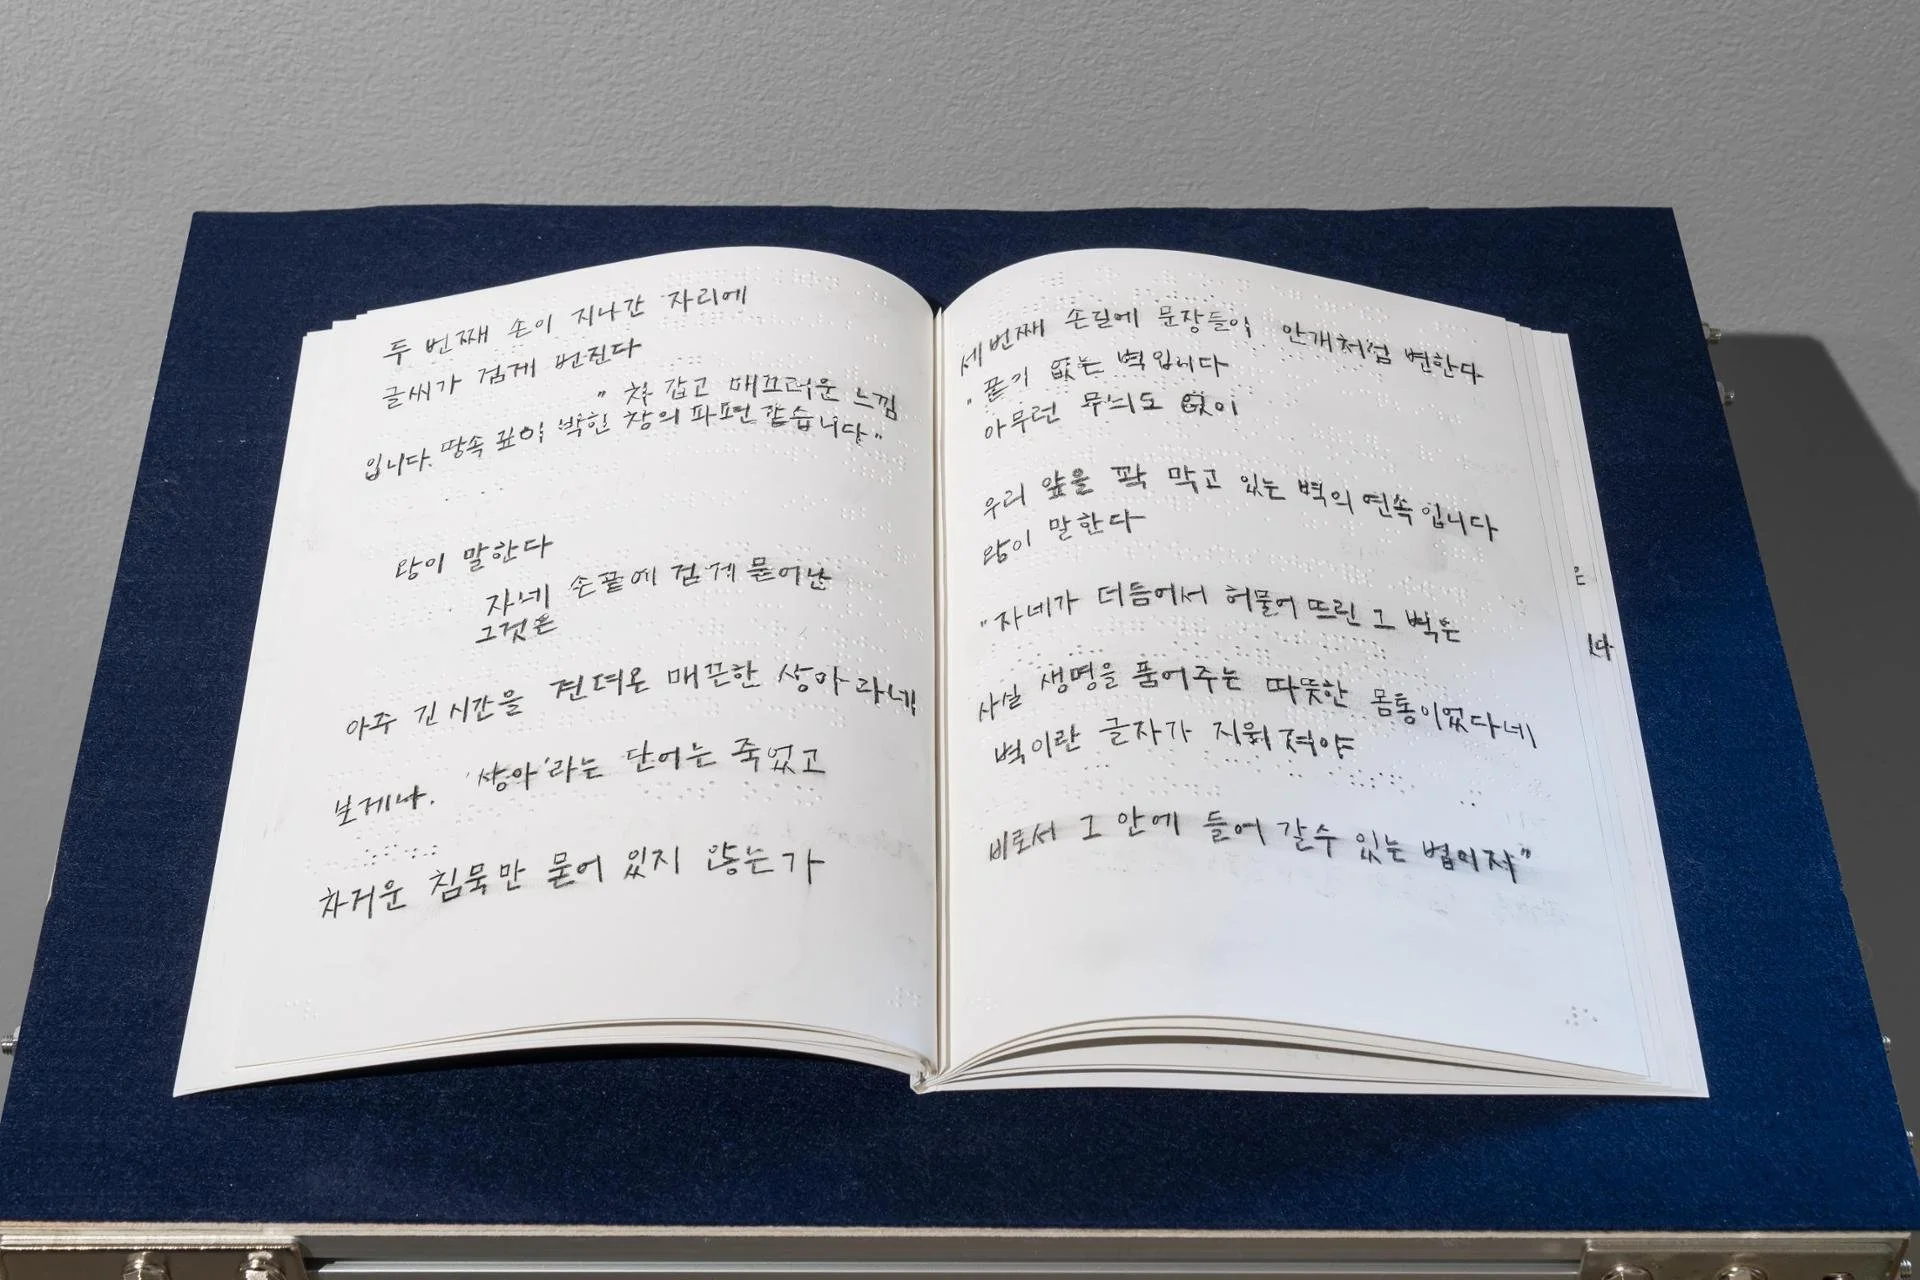 두 번째 손이 지나간 자리에
글씨가 검게 번진다
" 차갑고 매끄러운 느낌
입니다. 땅속 깊이 박힌 창의 파편 같습니다"
왕이 말한다
자네 손끝에 검게 묻어난
그것은
아주 긴 시간을 견뎌온 매끈한 상아라네
보게나. '상아'라는 단어는 죽었고
차거운 침묵만 묻어 있지 않는가
세번째 손길에 문장들이 안개처럼 변한다
"끝이 없는 벽입니다
아무런 무늬도 없이
우리 앞을 꽉 막고 있는 벽의 연속입니다
왕이 말한다
"자네가 더듬어서 허물어 뜨린 그 벽은
사실 생명을 품어주는 따뜻한 몸통이었다네
벽이란 글자가 지워져야
비로서 그 안에 들어 갈수 있는 법이지"